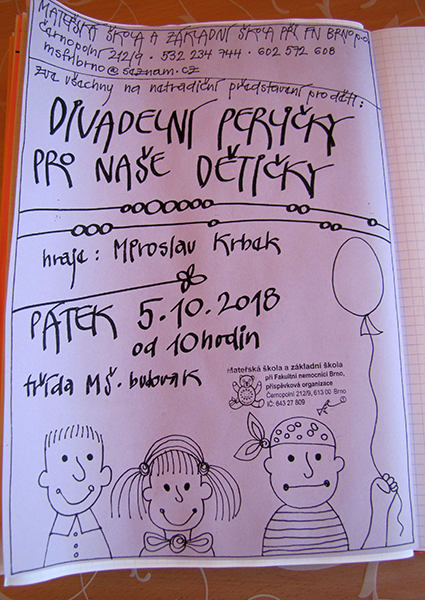 MATEŘSKÁ ŠKOLA A ZÁKLADNÍ ŠKOLA PŘI FN BRNO p.o.
Černopolní 212/9 · 532 234 744 · 602 592 608
msfnbrno@seznam.cz
zve všechny na netradiční představení pro děti:
DIVADELNÍ PERLIČKY
PRO NAŠE DĚTIČKY
hraje: Miroslav Krbek
PÁTEK 5.10.2018
od 10 hodin
třída MŠ. budova K
mateřská škola a základní škola
při Fakultní nemocnici Brno,
příspěvková organizace
Černopolní 212/9, 613 00 Brno
IČ: 643 27 809